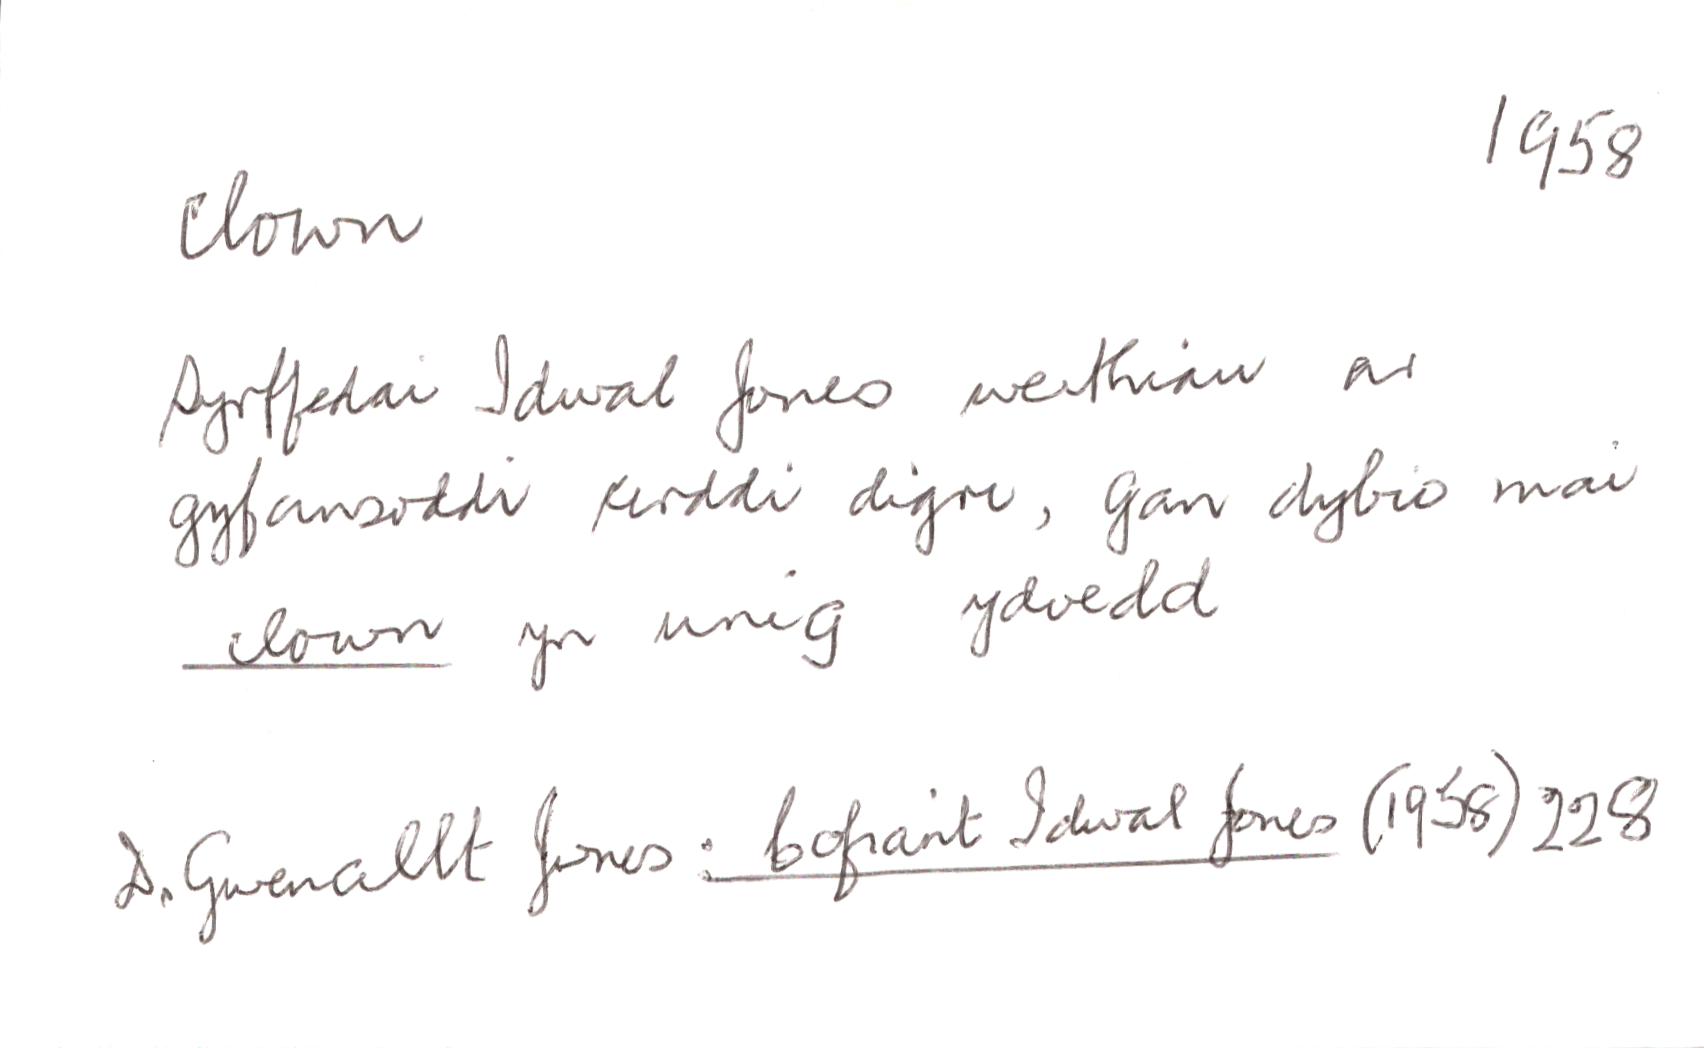 1958
clown
Syrffedai Idwal Jones weithiau ar
gyfansoddi cerddi digri, gan dybio mai
clown yn unig ydoedd
D. Gwenallt Jones: Cofiant Idwal Jones (1958) 228